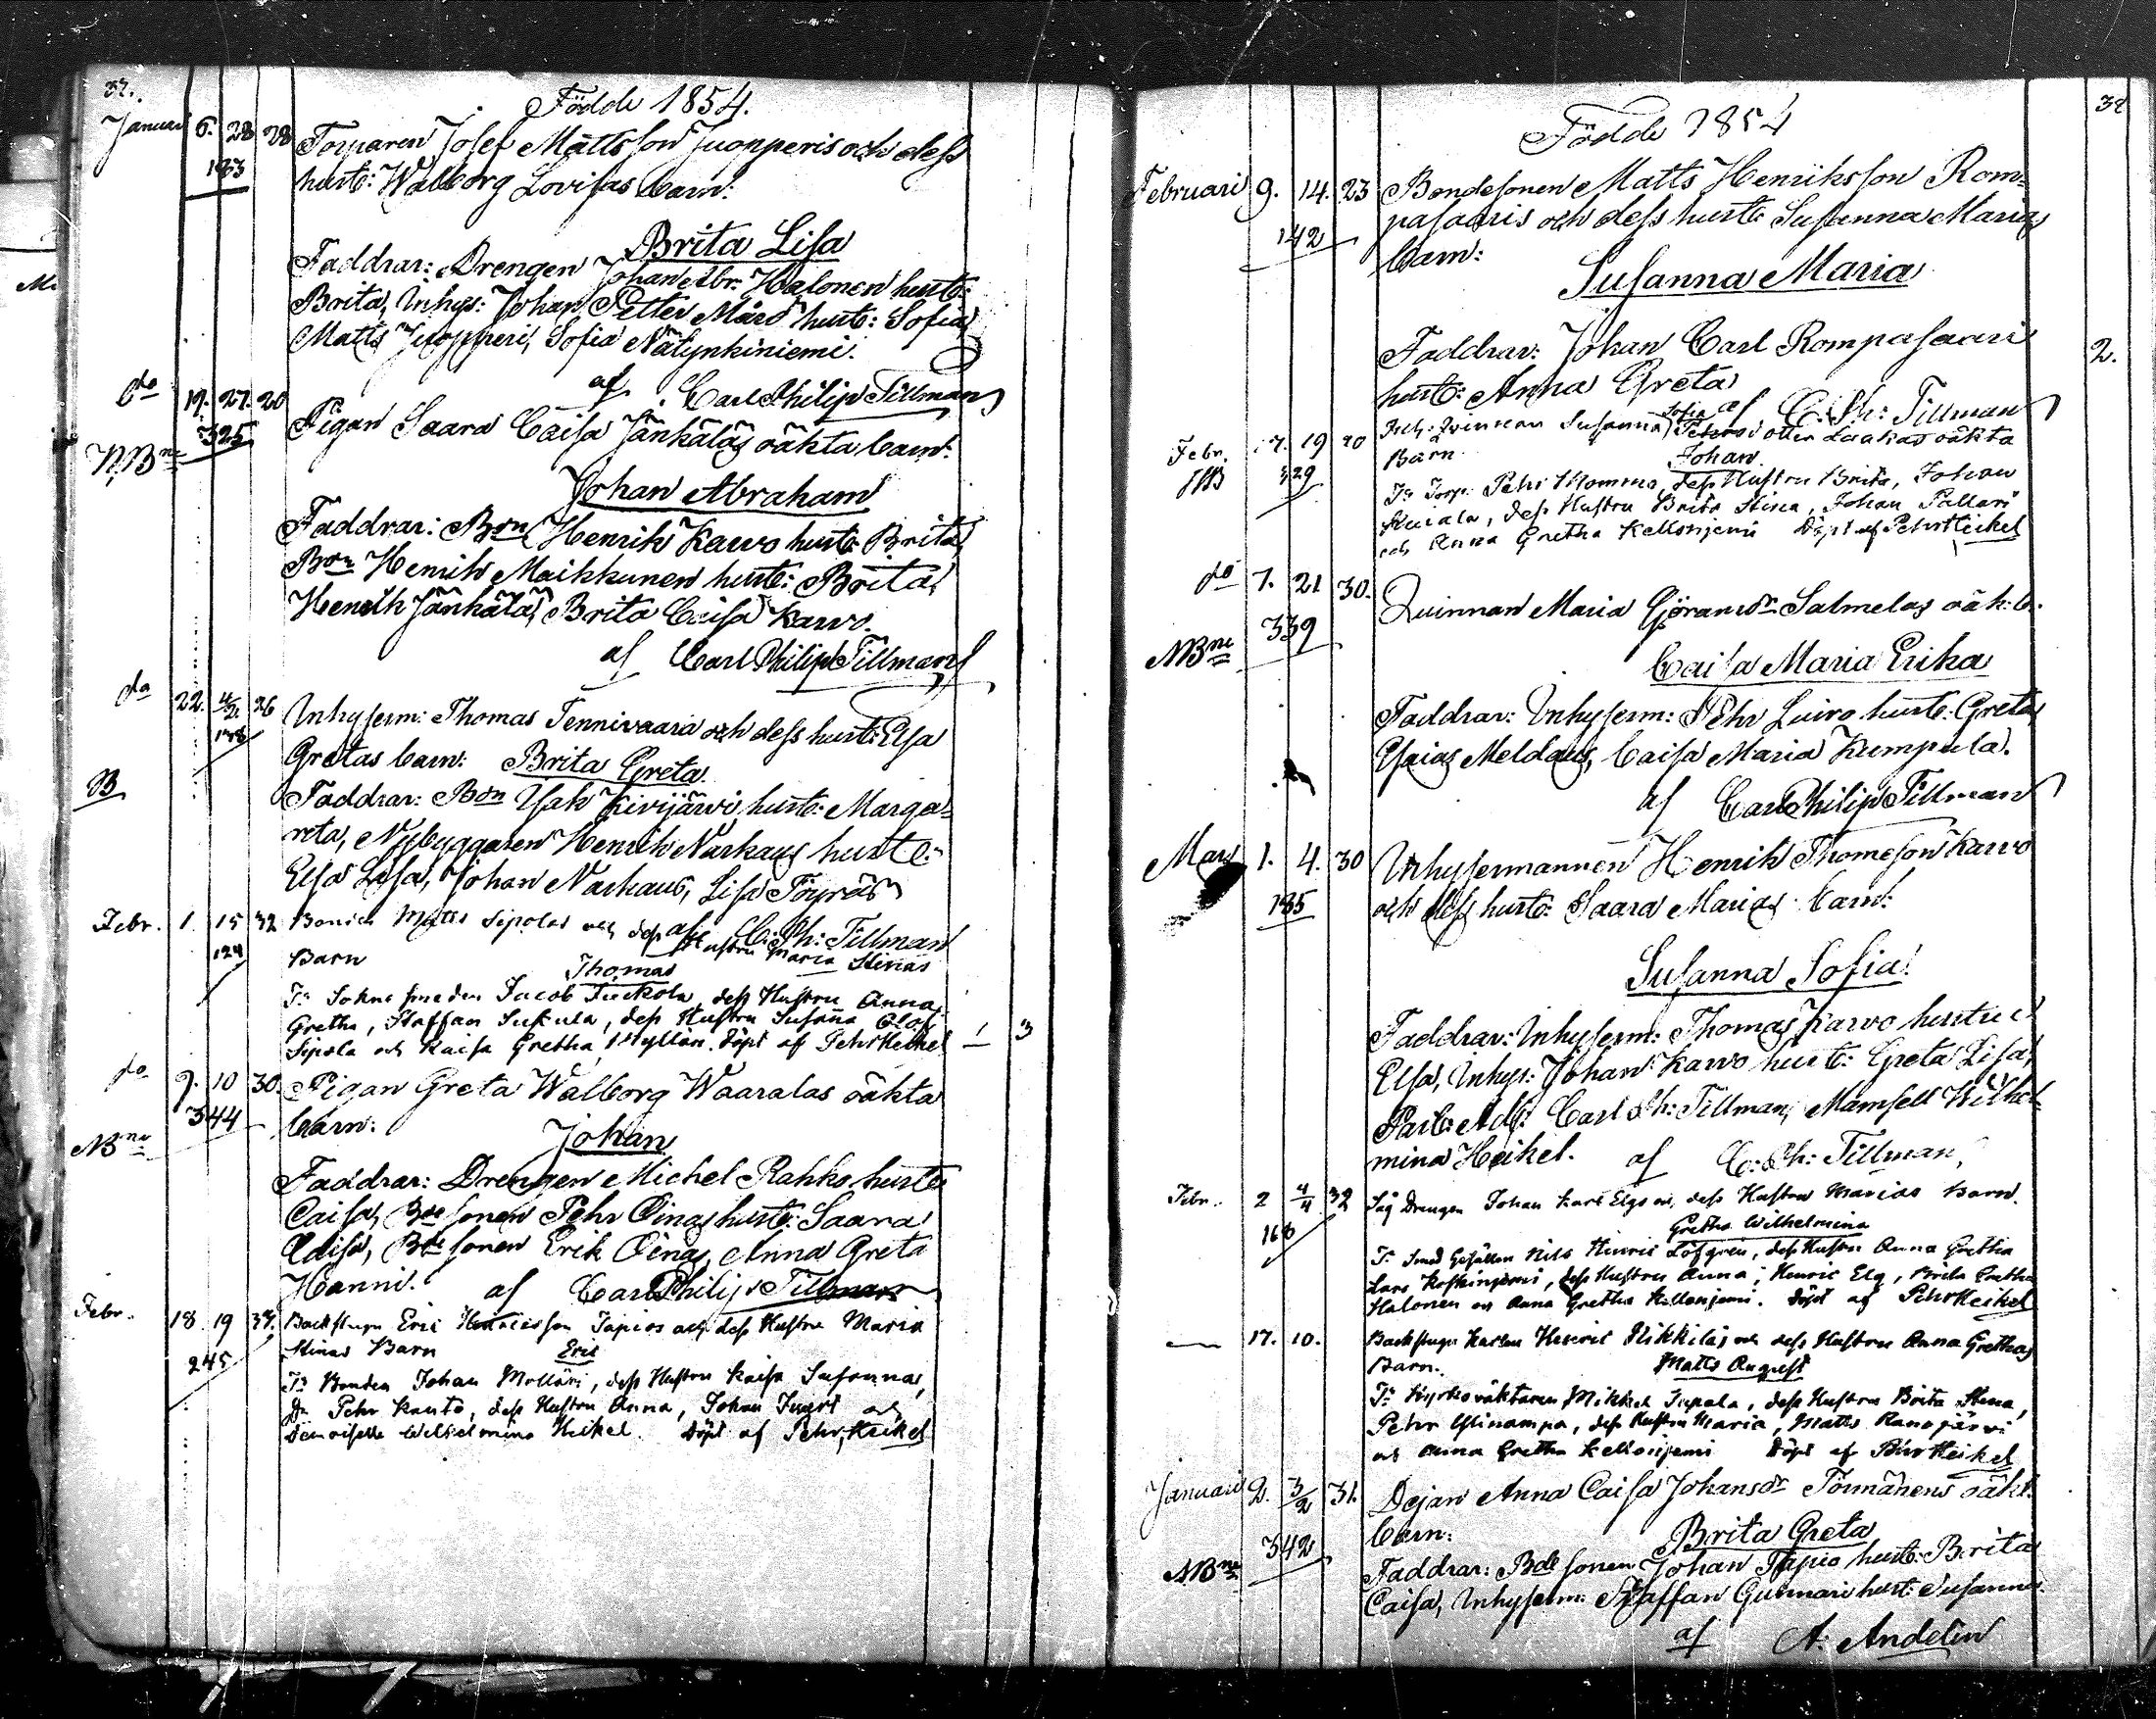 32.
Födde 1854.
Januari 6. 28 28 Torparen Josef Mattsson Juopperis och dess
193 hust: Walborg Lovisas barn:
Brita Lisa
Faddrar: Drengen Johan Abr: Halonen hust:
Brita, Inhys: Johan Petter Märd hust: Sofia,
Matts Juopperi, Sofia Nätynkiniemi.
af Carl Philip Tillman
do 19. 27. 20 Pigan Saara Caisa Jänkäläs oäkta barn:
325
NBne
Johan Abraham
Faddrar: Bon Henrik Karvo hust: Brita,
Bon Henrik Maikkunen hust: Brita,
Henrik Jänkälä, Brita Caisa Karvo.
af Carl Philip Tillman
do 22. 4/2. 26 Inhyserm: Thomas Tennivaara och dess hust: Elsa
178
Gretas barn: Brita Greta
B
Faddrar: Bon Isak Kivijärvi, hust: Marga-
reta, Nybyggaren Henrik Narkaus hust:
Elsa Lisa, Johan Narkaus, Lisa Törräs
af C: Ph: Tillman
Febr. 1 15 32 Bonden Matts Sipolas och dess Hustru Maria Stinas
124 Barn Thomas
Tr Sokne smeden Jacob Tuckola, dess Hustru Anna
Gretha, Staffan Sukula, dess Hustru Susanna Olof
Sipola och Kaisa Gretha Myllöri. Döpt af Pehr Heikel 1 3
do 9. 10 30. Pigan Greta Walborg Waaralas oäkta
344 barn: Johan
NBne
Faddrar: Drengen Michel Rahko, hust:
Caisa, Bdesonen Pehr Oinas hust: Saara
Caisa, Bdesonen Erik Oinas, Anna Greta
Hanni. af Carl Philip Tillman
Febr. 18 19 37. Backstugu Eric Henricsson Tapios och dess Hustru Maria
245 Stinas Barn Eric
Tr Bonden Johan Mollari, dess Hustru Kaisa Susanna,
Dr Pehr Kauto, dess Hustru Anna, Johan och
Demoiselle Wilhelmina Heikel. Döpt af Pehr Heikel
32
Födde 1854
Februari 9. 14. 23 Bondesonen Matts Henriksson Rom-
142 pasaaris och dess hust: Susanna Marias
barn:
Susanna Maria
Faddrar: Johan Carl Rompasaari 2.
hust: Anna Greta
af C: Ph: Tillman
Febr. 7. 19 20 Qvinnan Susanna Sofia oäkta
329 Barn Johan
Tr Torp. Pehr Mommo, dess Hustru Brita, Johan
Kuiala, dess Hustru Brita Stina, Johan Pallari
och Anna Gretha Kellonjemi Döpt af Pehr Heikel
do 7. 21 30. Quinnan Maria Göransdr Salmelas oäk: b:
339
NBne
Caisa Maria Erika
Faddrar: Inhyserm: Pehr Luiro hust: Greta,
Esaias Meldaus, Caisa Maria Kumpula.
af Carl Philip Tillman
Mars 1. 4. 30 Inhysermannen Henrik Thomesson Karvo
185 och dess hust: Saara Marias barn:
Susanna Sofia
Faddrar: Inhyserm: Thomas Karvo hustru
Elsa, Inhys: Johan Karvo hust: Greta Lisa,
Past: Adj: Carl Ph: Tillman, Mamsell Wilhel-
mina Heikel. af C: Ph: Tillman,
Febr. 2 4/4 32 Såg Drengen Johan Karl Elgs och dess Hustru Marias Barn.
168 Gretha Wilhelmina
Tr Smed Gesällen Nils Henric Löfgren, dess Hustru Anna Gretha
Lars Koskinjemi, dess Hustru Anna, Henric Elg, Brita Gretha
Halonen och Anna Gretha Kellonjemi. Döpt af Pehr Heikel
17. 10. Backstugu Karlen Henric Nikkiläs och dess Hustru Anna Grethas
Barn. Matts August
Tr Kyrkoväktaren Mikkel Supala, dess Hustru Brita Stina,
Pehr Ylinampa, dess Hustru Maria, Matts Ranojärvi
och Anna Gretha Kellonjemi Döpt af Pehr Heikel
Januari 2. 3/2 31. Dejan Anna Caisa Johansdr Törmänens oäkt:
342 barn: Brita Greta
NBne
Faddrar: Bdesonen Johan Tapio hust: Brita
Caisa, Inhyserm: Staffan Gutmari hust: Susanna
af A: Andelin